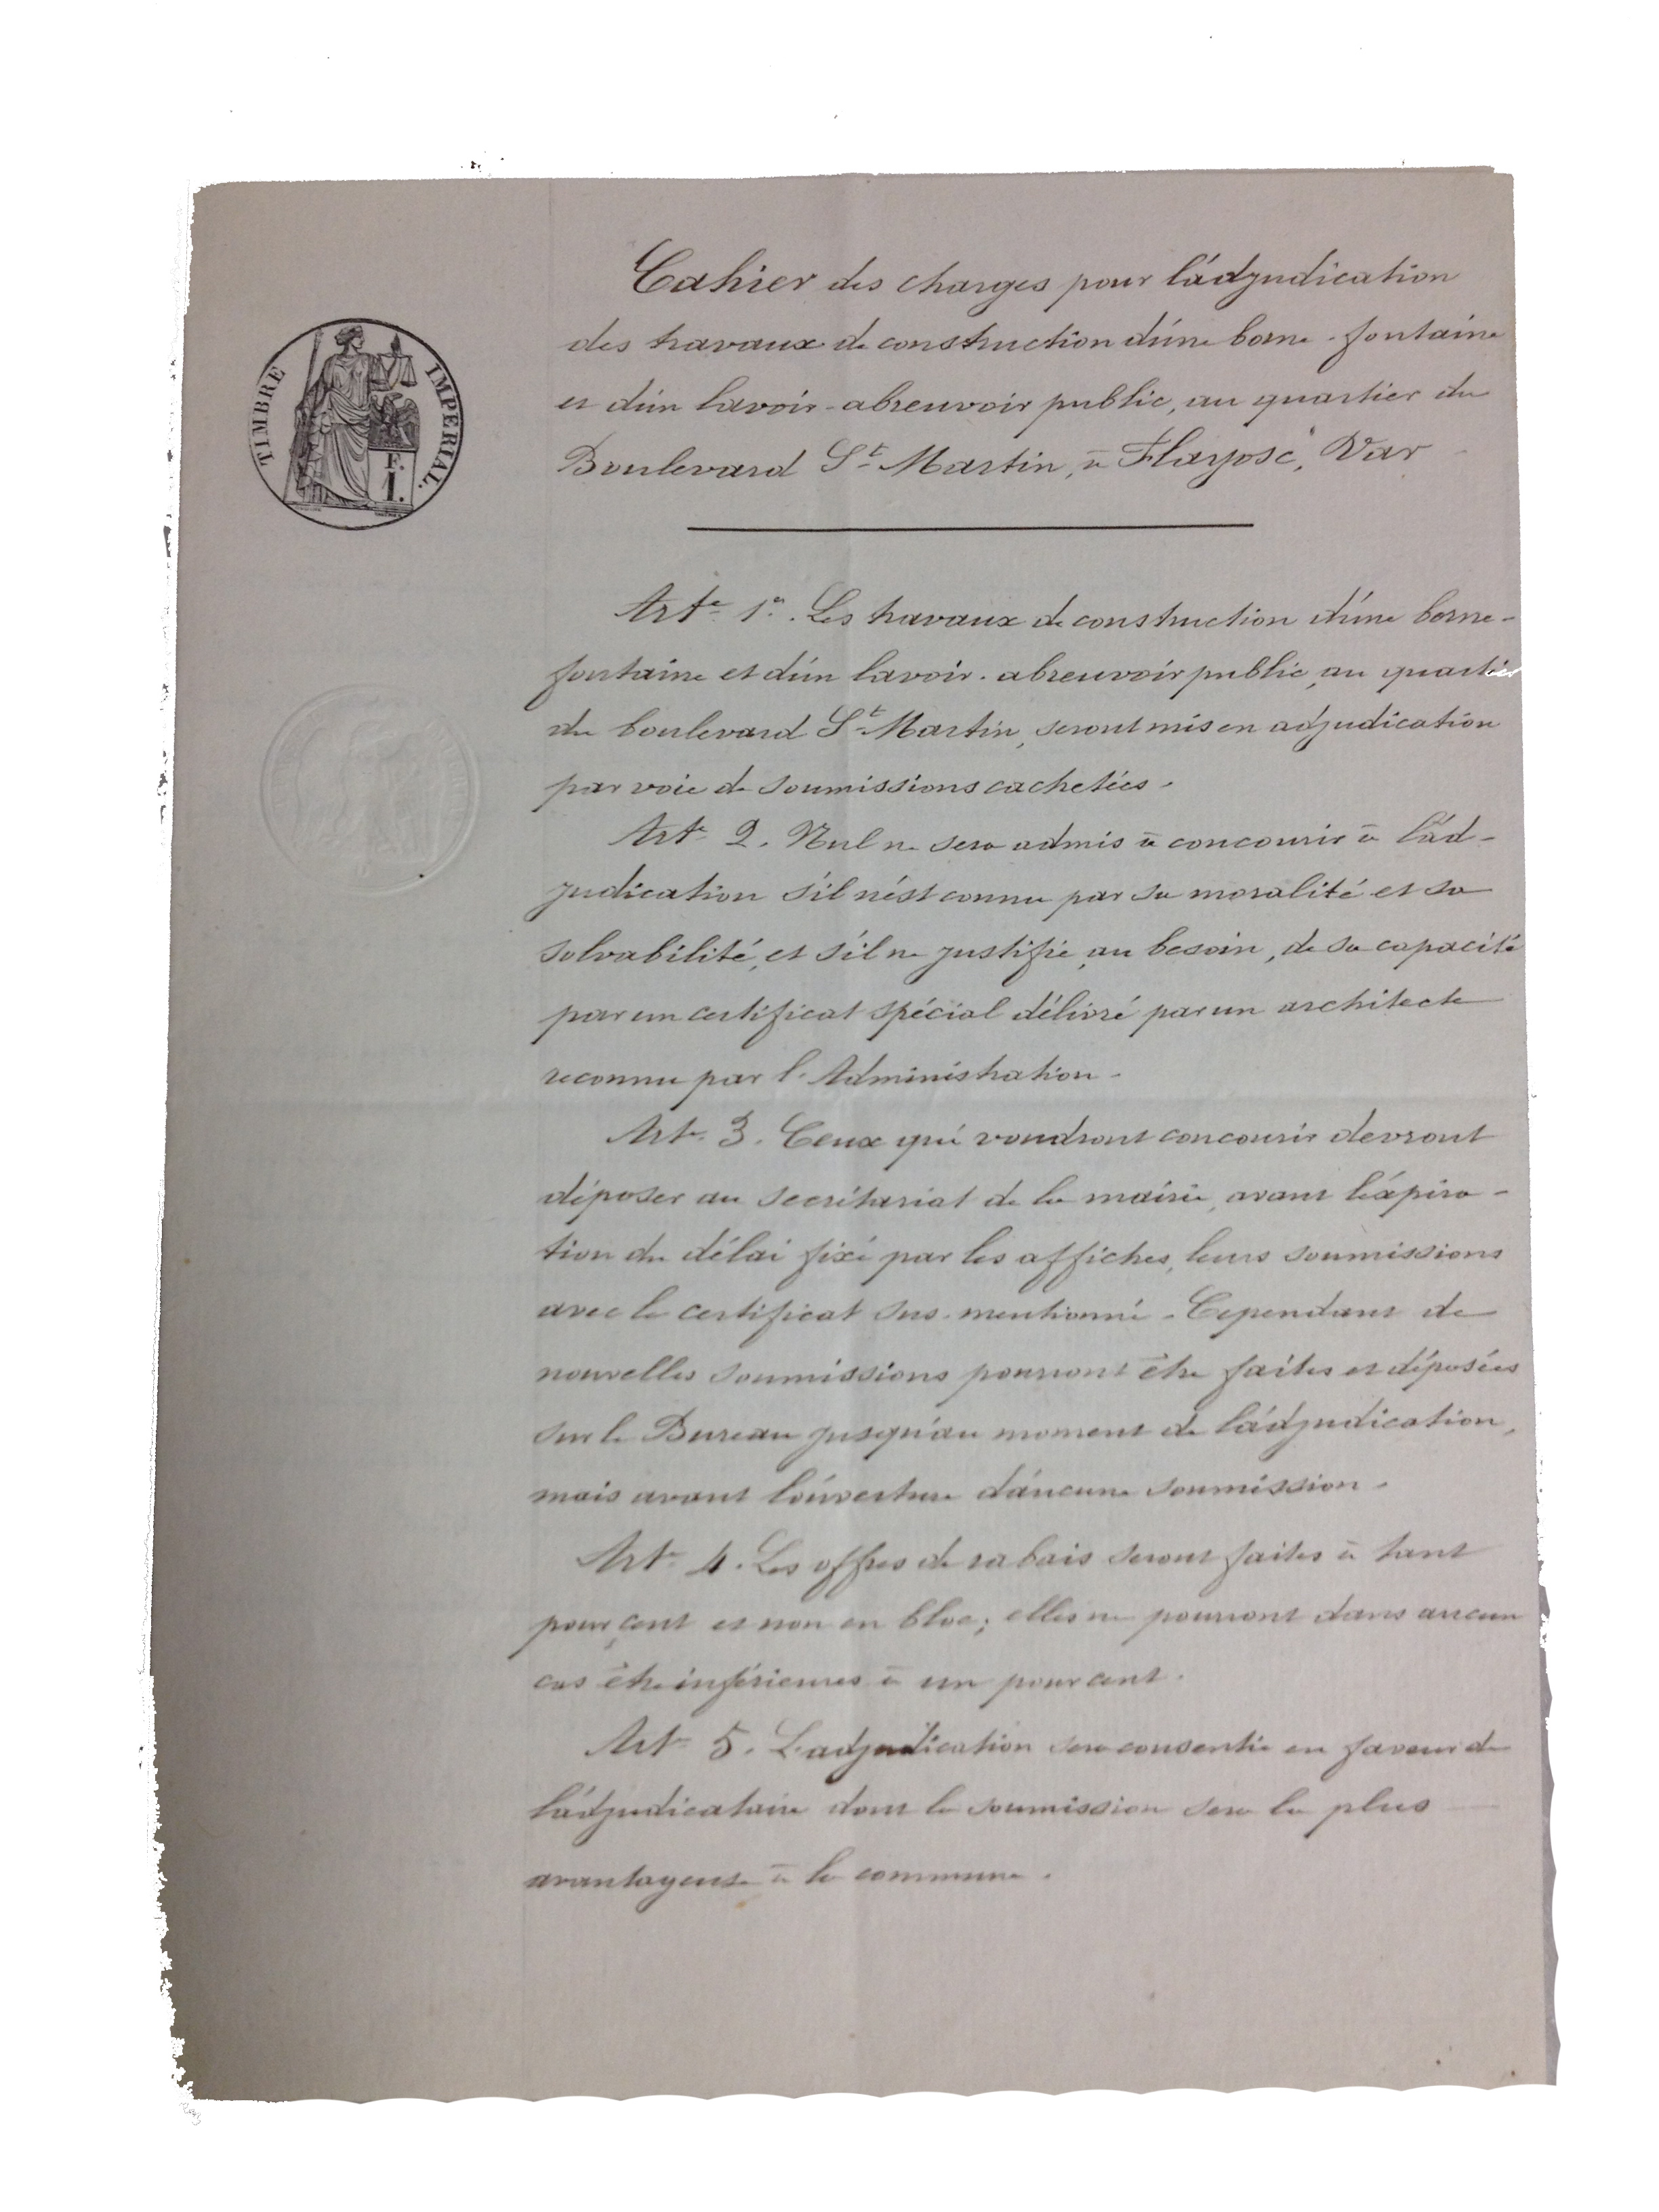 Cahier des charges pour l'adjudication
des travaux de construction d'une borne-fontaine
et d'un lavoir-abreuvoir public, au quartier du
Boulevard St Martin, à Flayosc, Var
TIMBRE IMPERIAL.
F.
I.
Arte 1er. Les travaux de construction d'une borne-
fontaine et d'un lavoir-abreuvoir public, au quartier
du boulevard St Martin, seront mis en adjudication
par voie de soumissions cachetées.
Arte 2. Nul ne sera admis à concourir à l'ad-
judication s'il n'est connu par sa moralité et sa
solvabilité, et s'il ne justifie, au besoin, de sa capacité
par un certificat spécial délivré par un architecte
reconnu par l'Administration.
Arte 3. Ceux qui voudront concourir devront
déposer au secrétariat de la mairie, avant l'expira-
tion du délai fixé par les affiches, leurs soumissions
avec le certificat sus-mentionné. Cependant de
nouvelles soumissions pourront être faites et déposées
sur le Bureau jusqu'au moment de l'adjudication,
mais avant l'ouverture d'aucune soumission.
Arte 4. Les offres de rabais seront faites à tant
pour cent et non en bloc; elles ne pourront dans aucun
cas être inférieures à un pour cent.
Arte 5. L'adjudication sera consentie en faveur de
l'adjudicataire dont la soumission sera la plus
avantageuse à la commune.